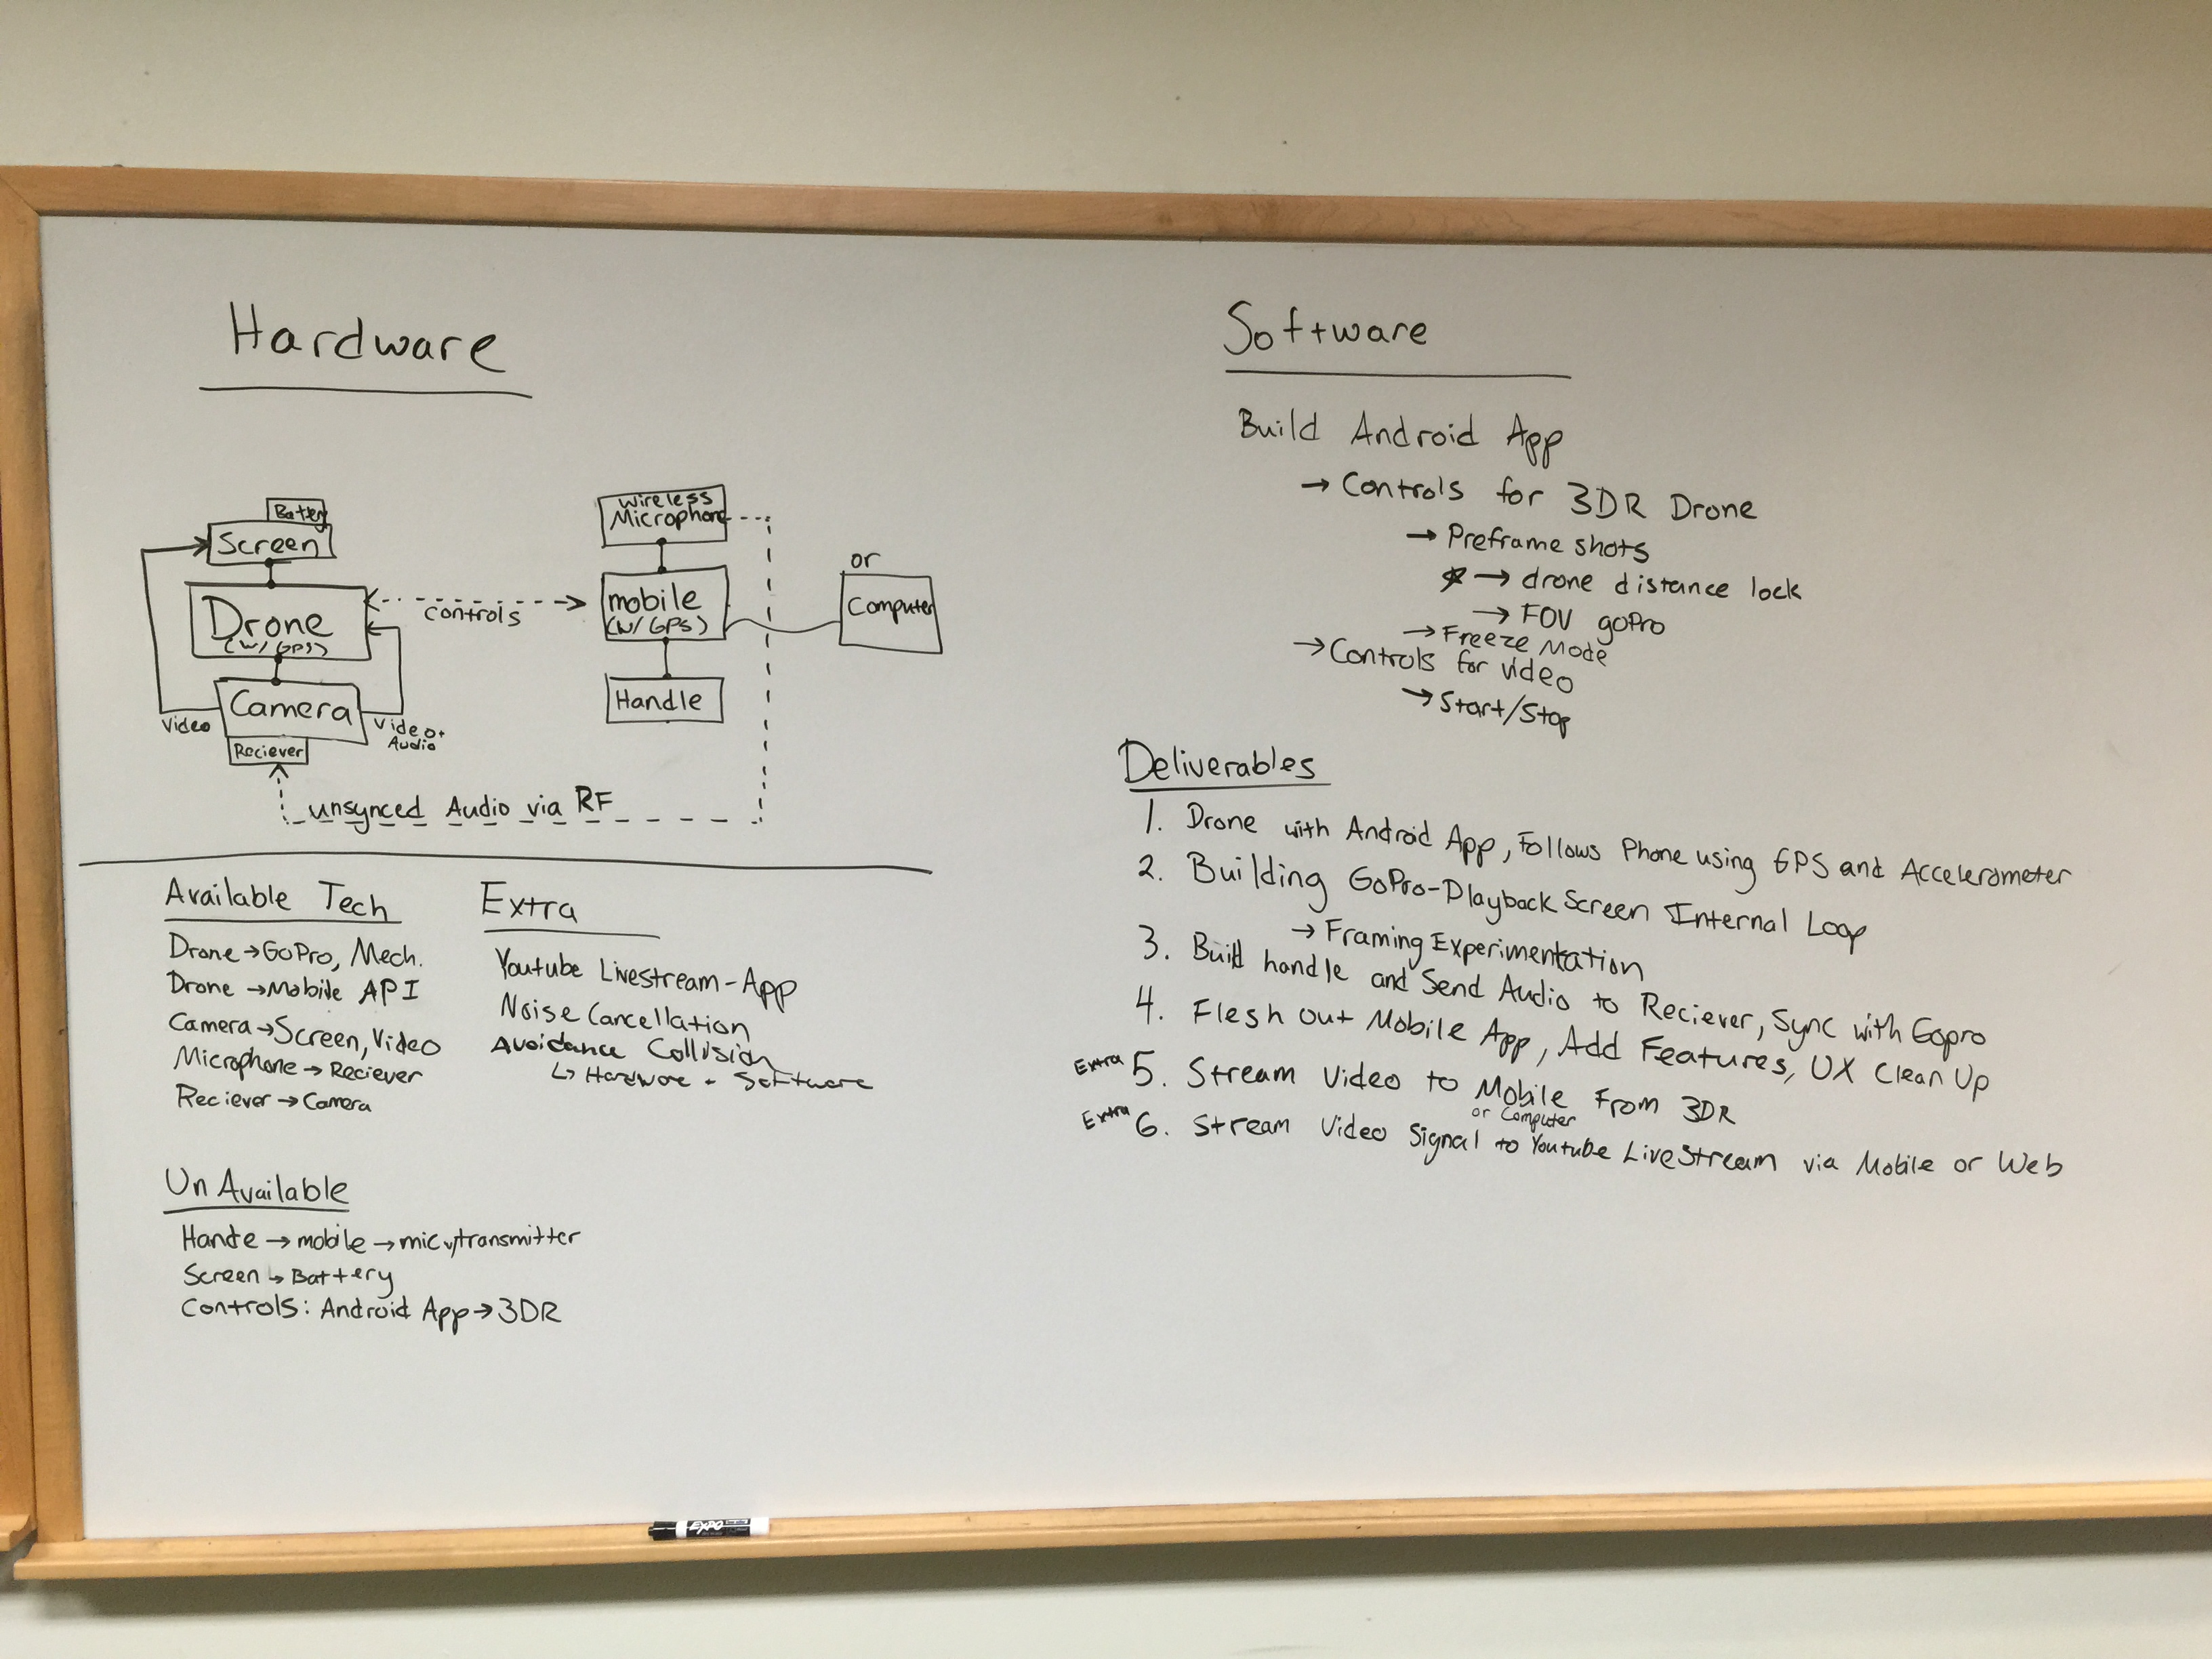 Hardware
Battery
Screen
Drone
(w/ GPS)
Camera
Reciever
Video
Video+
Audio
controls
wireless
Microphone
mobile
(w/ GPS)
Handle
or
Computer
unsynced Audio via RF
Available Tech
Drone → GoPro, Mech.
Drone → Mobile API
Camera → Screen, Video
Microphone → Reciever
Reciever → Camera
Extra
Youtube Livestream - App
Noise Cancellation
Avoidance Collision
↳ Hardware + Software
UnAvailable
Hande → mobile → mic w/transmitter
Screen → Battery
Controls: Android App → 3DR
Software
Build Android App
→ Controls for 3DR Drone
→ Preframe shots
☆ → drone distance lock
→ FOV goPro
→ Freeze Mode
→ Controls for video
→ Start/Stop
Deliverables
1. Drone with Android App, Follows Phone using GPS and Accelerometer
2. Building GoPro-Playback Screen Internal Loop
→ Framing Experimentation
3. Build handle and Send Audio to Reciever, Sync with Gopro
4. Flesh out Mobile App, Add Features, UX Clean Up
Extra 5. Stream Video to Mobile From 3DR
or Computer
Extra 6. Stream Video Signal to Youtube LiveStream via Mobile or Web
EXPO